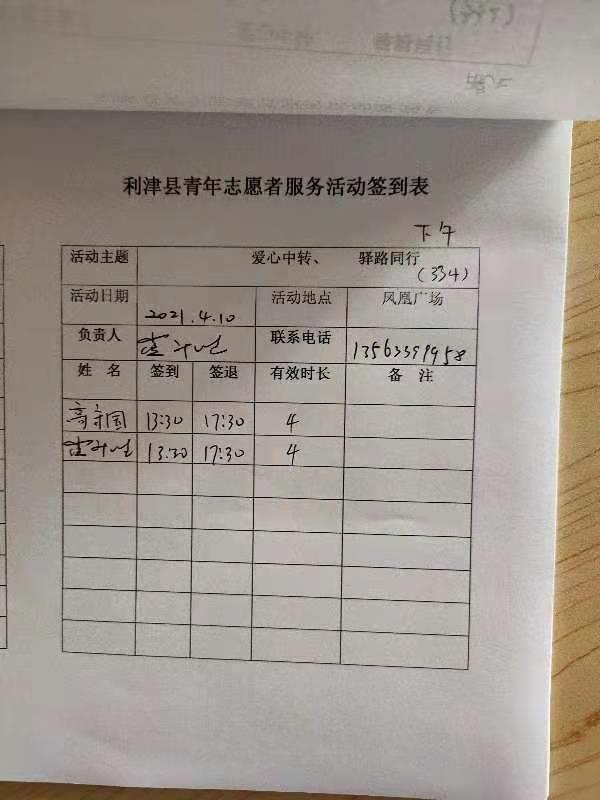 利津县青年志愿者服务活动签到表
下午
活动主题 爱心中转、 驿路同行
(334)
活动日期 2021.4.10 活动地点 凤凰广场
负责人 联系电话 13563399958
姓名 签到 签退 有效时长 备注
高守国 13:30 17:30 4
13:30 17:30 4